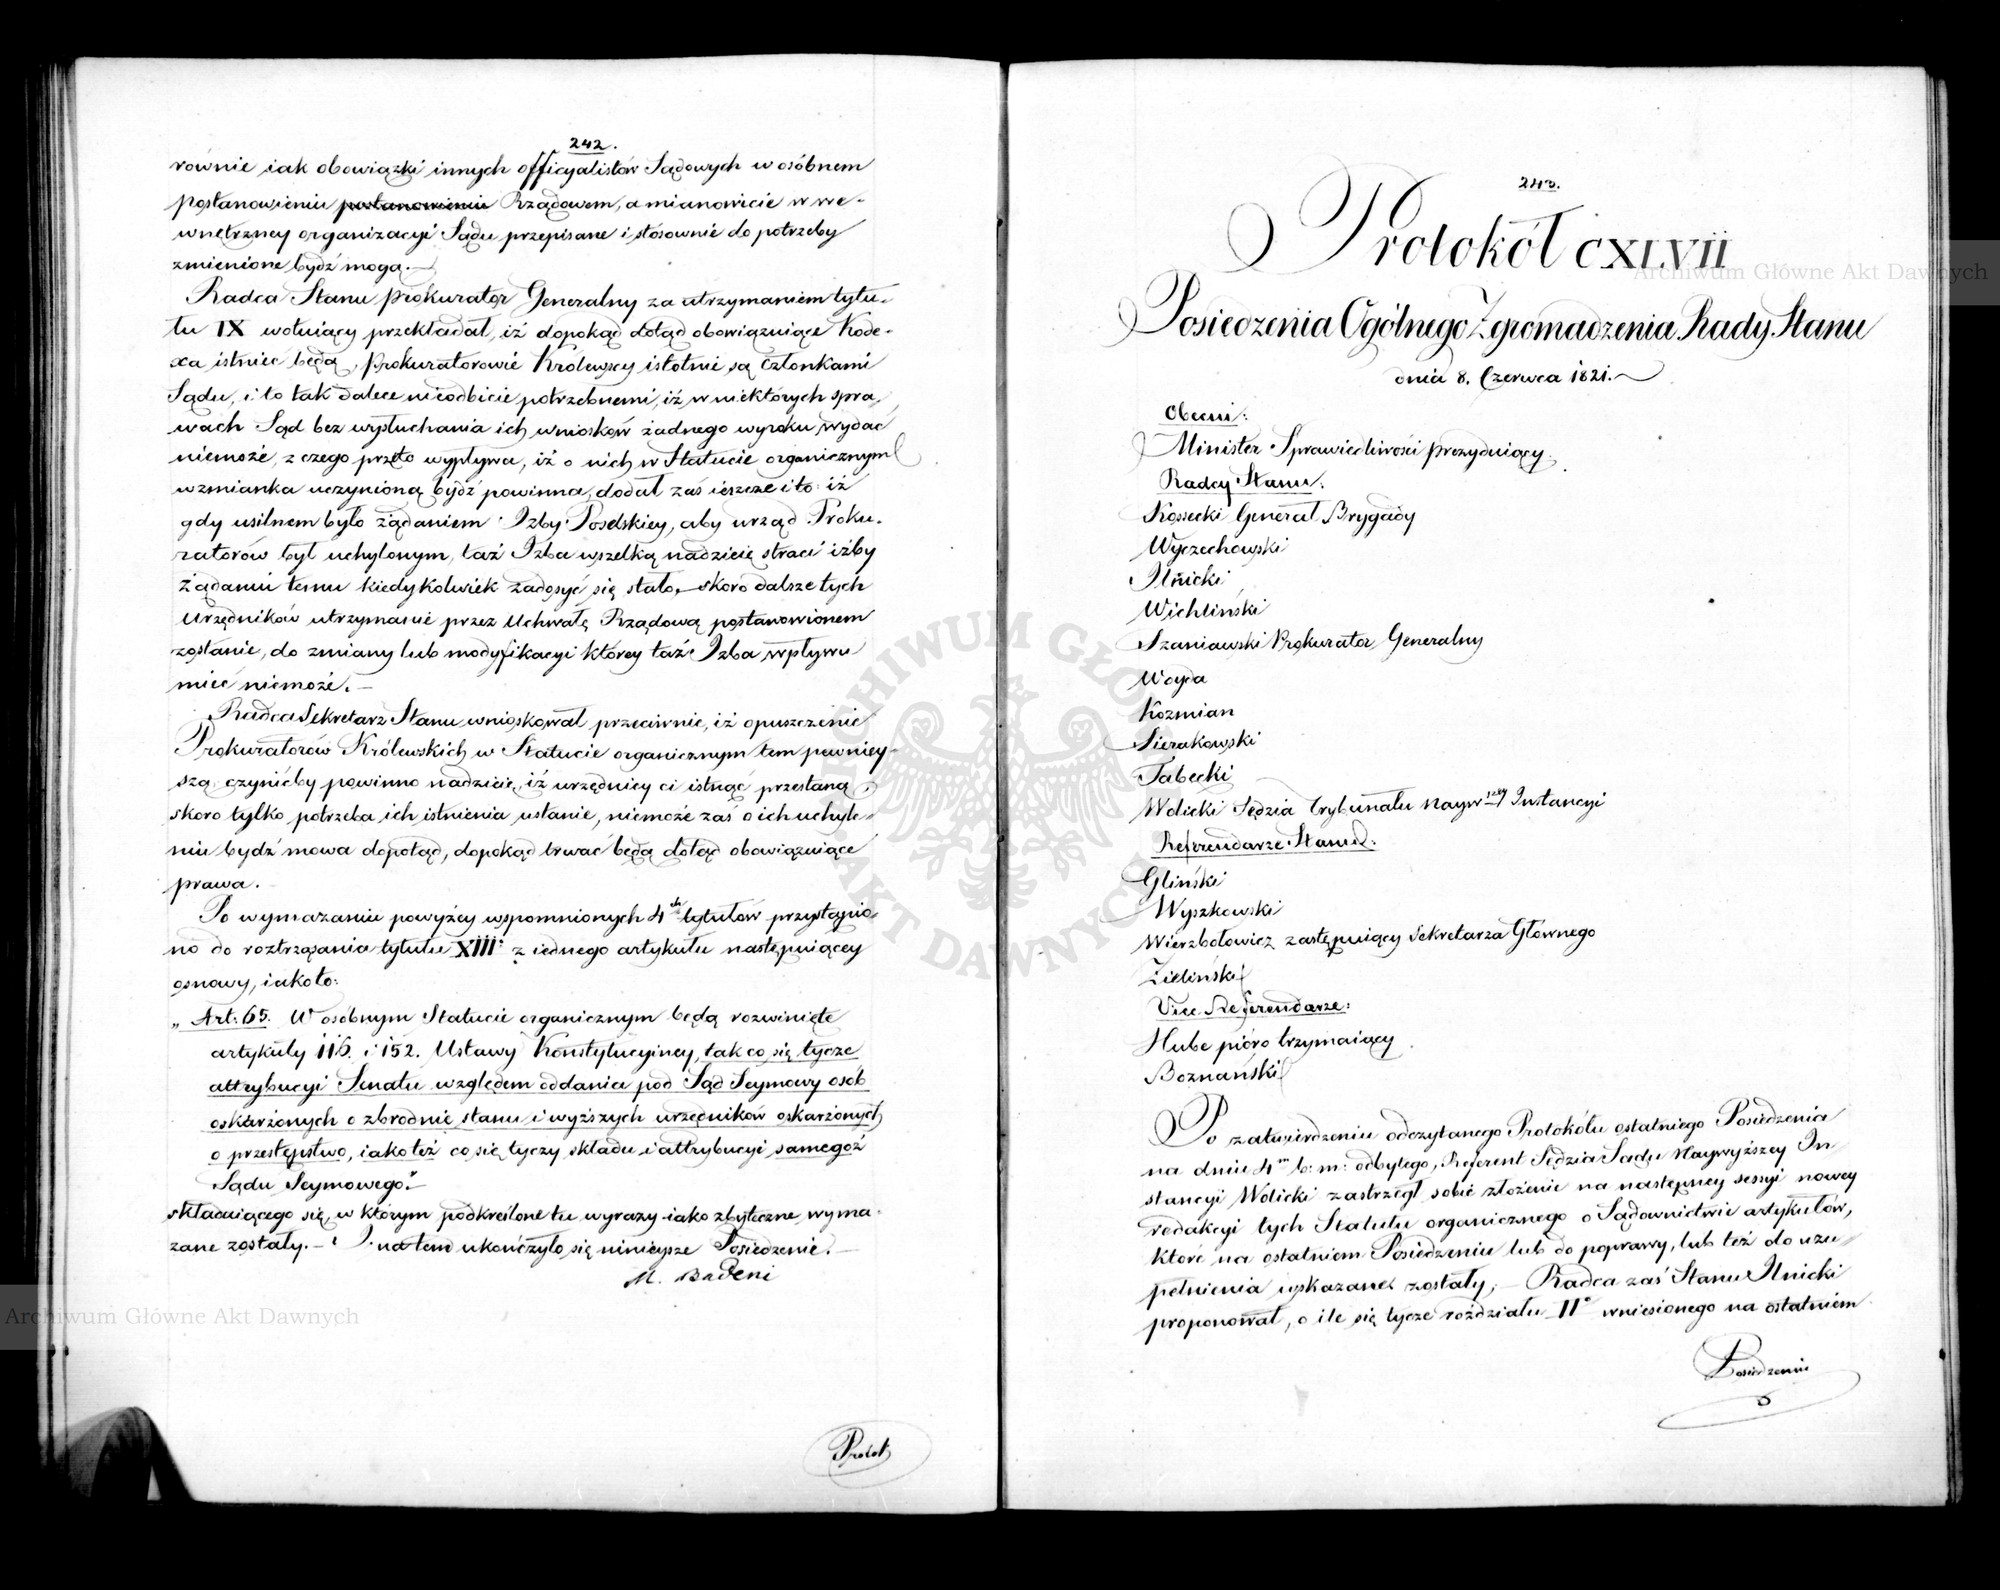 242.
równie iak obowiązki innych officyalistów Sądowych w osóbnem
postanowieniu postanowieniu Rządowem, a mianowicie w we-
wnętrzney organizacyi Sądu przepisane i stósownie do potrzeby
zmienione bydź mogą.—
Radca Stanu Prokurator Generalny za utrzymaniem tytu-
łu IX wotuiący przekładał, iż dopokąd dotąd obowiązuiące Kode-
xa istnieć będą, Prokuratorowie Królewscy istotnie są członkami
Sądu, i to tak dalece nieodbicie potrzebnemi, iż w niektórych spra-
wach Sąd bez wysłuchania ich wniosków żadnego wyroku wydać
niemoże, z czego przeto wypływa, iż o nich w Statucie organicznym
wzmianka uczynioną bydź powinna, dodał zaś ieszcze i to: iż
gdy usilnem było żądaniem Izby Poselskiey, aby urząd Proku-
ratorów był uchylonym, taż Izba wszelką nadzieię straci iżby
żądaniu temu kiedykolwiek zadosyć się stało, skoro dalsze tych
Urzędników utrzymanie przez Uchwałę Rządową postanowionem
zostanie, do zmiany lub modyfikacyi którey taż Izba wpływu
mieć niemoże.—
Radca Sekretarz Stanu wnioskował przeciwnie, iż opuszczenie
Prokuratorów Królewskich w Statucie organicznym tem pewniey-
szą czynićby powinno nadzieię, iż urzędnicy ci istnąć przestaną,
skoro tylko potrzeba ich istnienia ustanie, niemoże zaś o ich uchyle-
niu bydź mowa dopotąd, dopokąd trwać będą dotąd obowiązuiące
prawa.
Po wymazaniu powyżey wspomnionych 4ch tytułów przystąpio-
no do roztrząsania tytułu XIII° z iednego artykułu następuiącey
osnowy, iako to:
„Art: 65. W osóbnym Statucie organicznym będą rozwinięte
artykuły 116. i 152. Ustawy Konstytucyiney, tak co się tycze
attrybucyi Senatu względem oddania pod Sąd Seymowy osób
oskarżonych o zbrodnie stanu i wyższych urzędników oskarżonych
o przestępstwo, iako też co się tyczy składu i attrybucyi samegoż
Sądu Seymowego."
składaiącego się, w którym podkreślone tu wyrazy iako zbyteczne wyma-
zane zostały.— I na tem ukończyło się ninieysze Posiedzenie.—
M. Badeni
Protok
243.
Protokół CXLVII
Posiedzenia Ogólnego Zgromadzenia Rady Stanu
dnia 8. Czerwca 1821.
Obecni:
Minister Sprawiedliwości prezyduiący.
Radcy Stanu:
Kossecki Generał Brygady
Wyczechowski
Ilnicki
Wichliński
Szaniawski Prokurator Generalny
Woyda
Kozmian
Sierakowski
Tabecki
Wolicki Sędzia Trybunału Nayw:szey Instancyi
Referendarze Stanu:
Gliński
Wyszkowski
Wierzbołowicz zastępuiący Sekretarza Głównego
Zieliński
Vice Referendarze:
Hube pióro trzymaiący
Boznański
Po zatwierdzeniu odczytanego Protokółu ostatniego Posiedzenia
na dniu 4m b: m: odbytego, Referent Sędzia Sądu Naywyższey In-
stancyi Wolicki zastrzegł sobie złożenie na następney sessyi nowey
redakcyi tych Statutu organicznego o Sądownictwie artykułów,
które na ostatniem Posiedzeniu lub do poprawy, lub też do uzu-
pełnienia wskazane zostały;— Radca zaś Stanu Ilnicki
proponował, o ile się tycze rozdziału II° wniesionego na ostatniem
Posiedzeniu
Archiwum Główne Akt Dawnych
Archiwum Główne Akt Dawnych
ARCHIWUM GŁÓWNE AKT DAWNYCH